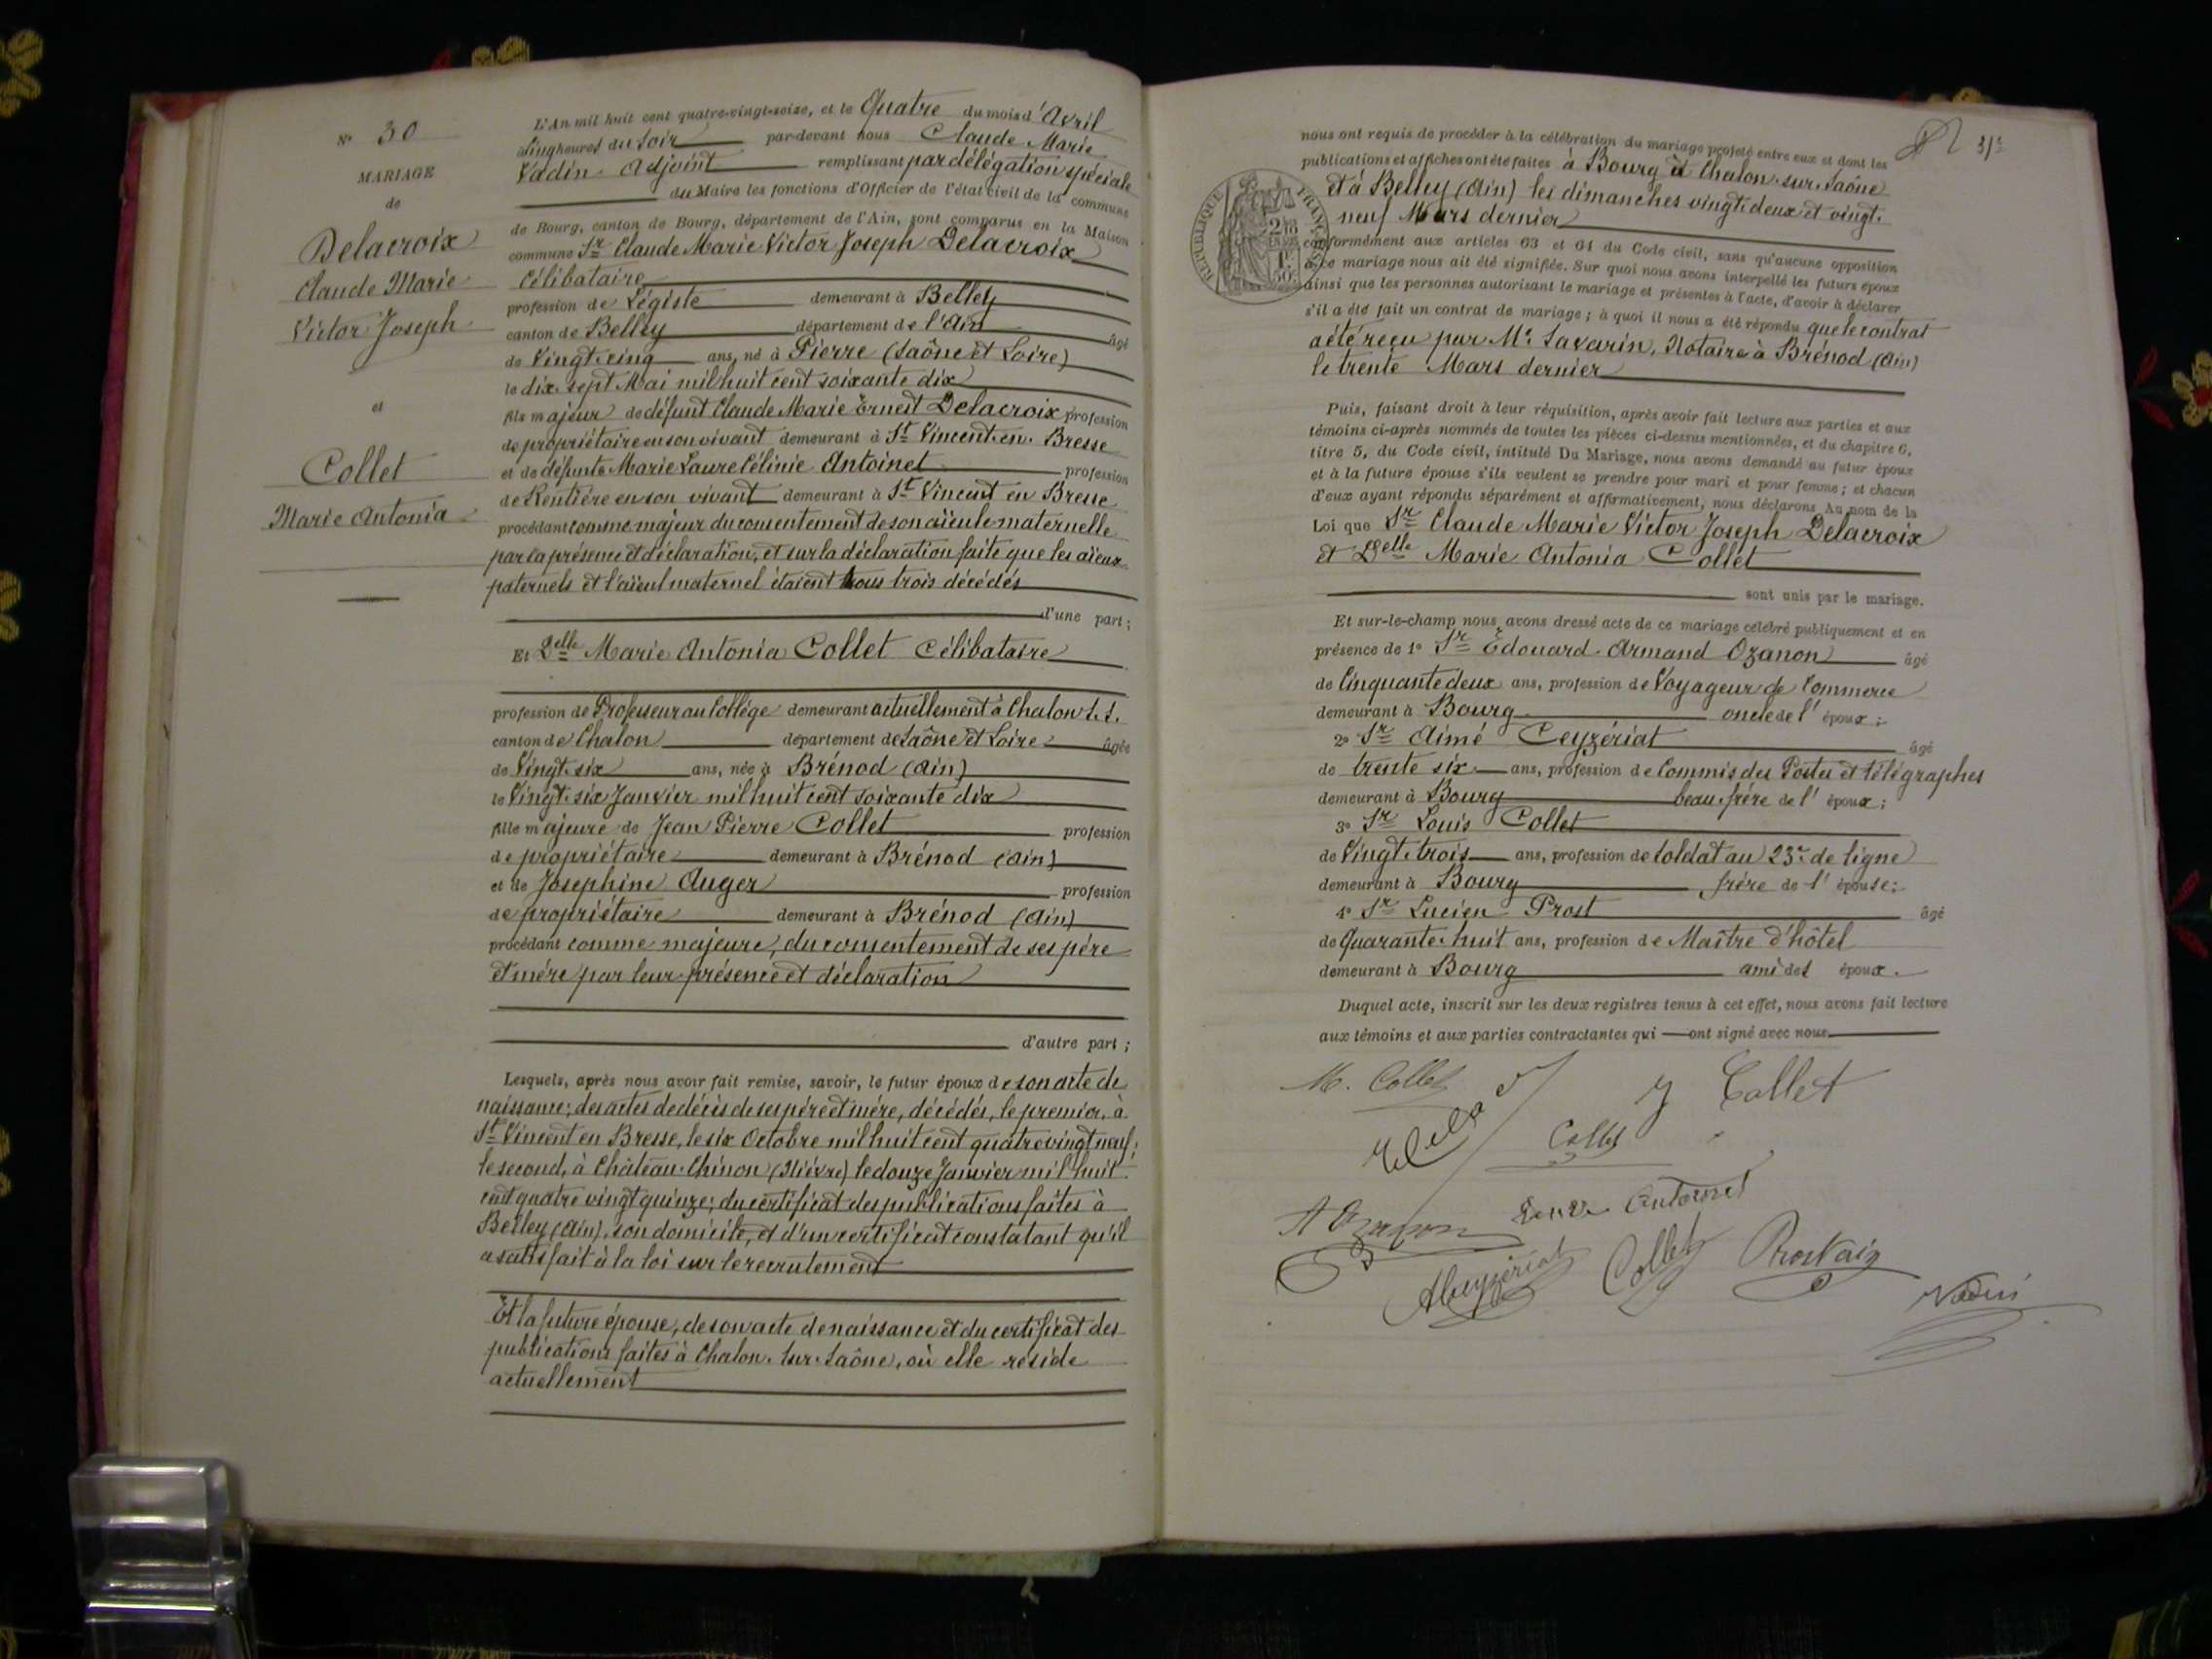 N° 30
MARIAGE
de
Delacroix
Claude Marie
Victor Joseph
et
Collet
Marie Antonia
L'An mil huit cent quatre-vingt-seize, et le Quatre du mois d'Avril
à Cinq heures du Soir par-devant nous Claude Marie
Vadin Adjoint remplissant par délégation spéciale
du Maire les fonctions d'Officier de l'état civil de la commune
de Bourg, canton de Bourg, département de l'Ain, sont comparus en la Maison
commune Sr Claude Marie Victor Joseph Delacroix
Célibataire
profession de Légiste demeurant à Belley
canton de Belley département de l'Ain âgé
de Vingt-cinq ans, né à Pierre (Saône et Loire)
le dix-sept Mai mil huit cent soixante dix
fils majeur de défunt Claude Marie Ernest Delacroix profession
de propriétaire en son vivant demeurant à St Vincent-en-Bresse
et de défunte Marie Laure Célinie Antoinet profession
de Rentière en son vivant demeurant à St Vincent en Bresse
procédant comme majeur du consentement de son aïeule maternelle
par sa présence et déclaration, et sur la déclaration faite que les aïeux
paternels et l'aïeul maternel étaient tous trois décédés
d'une part;
Et Delle Marie Antonia Collet Célibataire
profession de Professeur au Collège demeurant actuellement à Chalon s. S.
canton de Chalon département de Saône et Loire âgée
de Vingt-six ans, née à Brénod (Ain)
le Vingt-six Janvier mil huit cent soixante dix
fille majeure de Jean Pierre Collet profession
de propriétaire demeurant à Brénod (Ain)
et de Josephine Auger profession
de propriétaire demeurant à Brénod (Ain)
procédant comme majeure, du consentement de ses père
et mère par leur présence et déclaration
d'autre part;
Lesquels, après nous avoir fait remise, savoir, le futur époux de son acte de
naissance; des actes de décès de ses père et mère, décédés, le premier, à
St Vincent en Bresse, le six Octobre mil huit cent quatre vingt neuf;
le second, à Château-Chinon (Nièvre) le douze Janvier mil huit
cent quatre vingt quinze; du certificat des publications faites à
Belley (Ain), son domicile, et d'un certificat constatant qu'il
a satisfait à la loi sur le recrutement
Et la future épouse, de son acte de naissance et du certificat des
publications faites à Chalon-sur-Saône, où elle réside
actuellement
31e
nous ont requis de procéder à la célébration du mariage projeté entre eux et dont les
publications et affiches ont été faites à Bourg à Chalon-sur-Saône
et à Belley (Ain) les dimanches vingt-deux et vingt-
neuf Mars dernier
REPUBLIQUE FRANÇAISE
conformément aux articles 63 et 64 du Code civil, sans qu'aucune opposition
à ce mariage nous ait été signifiée. Sur quoi nous avons interpellé les futurs époux
ainsi que les personnes autorisant le mariage et présentes à l'acte, d'avoir à déclarer
s'il a été fait un contrat de mariage; à quoi il nous a été répondu que le contrat
a été reçu par Me Savarin, Notaire à Brénod (Ain)
le trente Mars dernier
Puis, faisant droit à leur réquisition, après avoir fait lecture aux parties et aux
témoins ci-après nommés de toutes les pièces ci-dessus mentionnées, et du chapitre 6,
titre 5, du Code civil, intitulé Du Mariage, nous avons demandé au futur époux
et à la future épouse s'ils veulent se prendre pour mari et pour femme; et chacun
d'eux ayant répondu séparément et affirmativement, nous déclarons Au nom de la
Loi que Sr Claude Marie Victor Joseph Delacroix
et Delle Marie Antonia Collet
sont unis par le mariage.
Et sur-le-champ nous avons dressé acte de ce mariage célébré publiquement et en
présence de 1° Sr Edouard-Armand Ozanon âgé
de Cinquante deux ans, profession de Voyageur de Commerce
demeurant à Bourg oncle de l'époux;
2° Sr Aimé Ceyzériat âgé
de trente six ans, profession de Commis des Postes et télégraphes
demeurant à Bourg beau-frère de l'époux;
3° Sr Louis Collet
de Vingt-trois ans, profession de Soldat au 23e de ligne
demeurant à Bourg frère de l'épouse;
4° Sr Lucien Prost âgé
de Quarante-huit ans, profession de Maître d'hôtel
demeurant à Bourg ami des époux.
Duquel acte, inscrit sur les deux registres tenus à cet effet, nous avons fait lecture
aux témoins et aux parties contractantes qui ont signé avec nous
M. Collet
J Collet
Collet
A Ozanon
Antoinet
A Ceyzériat
Collet
Vadin